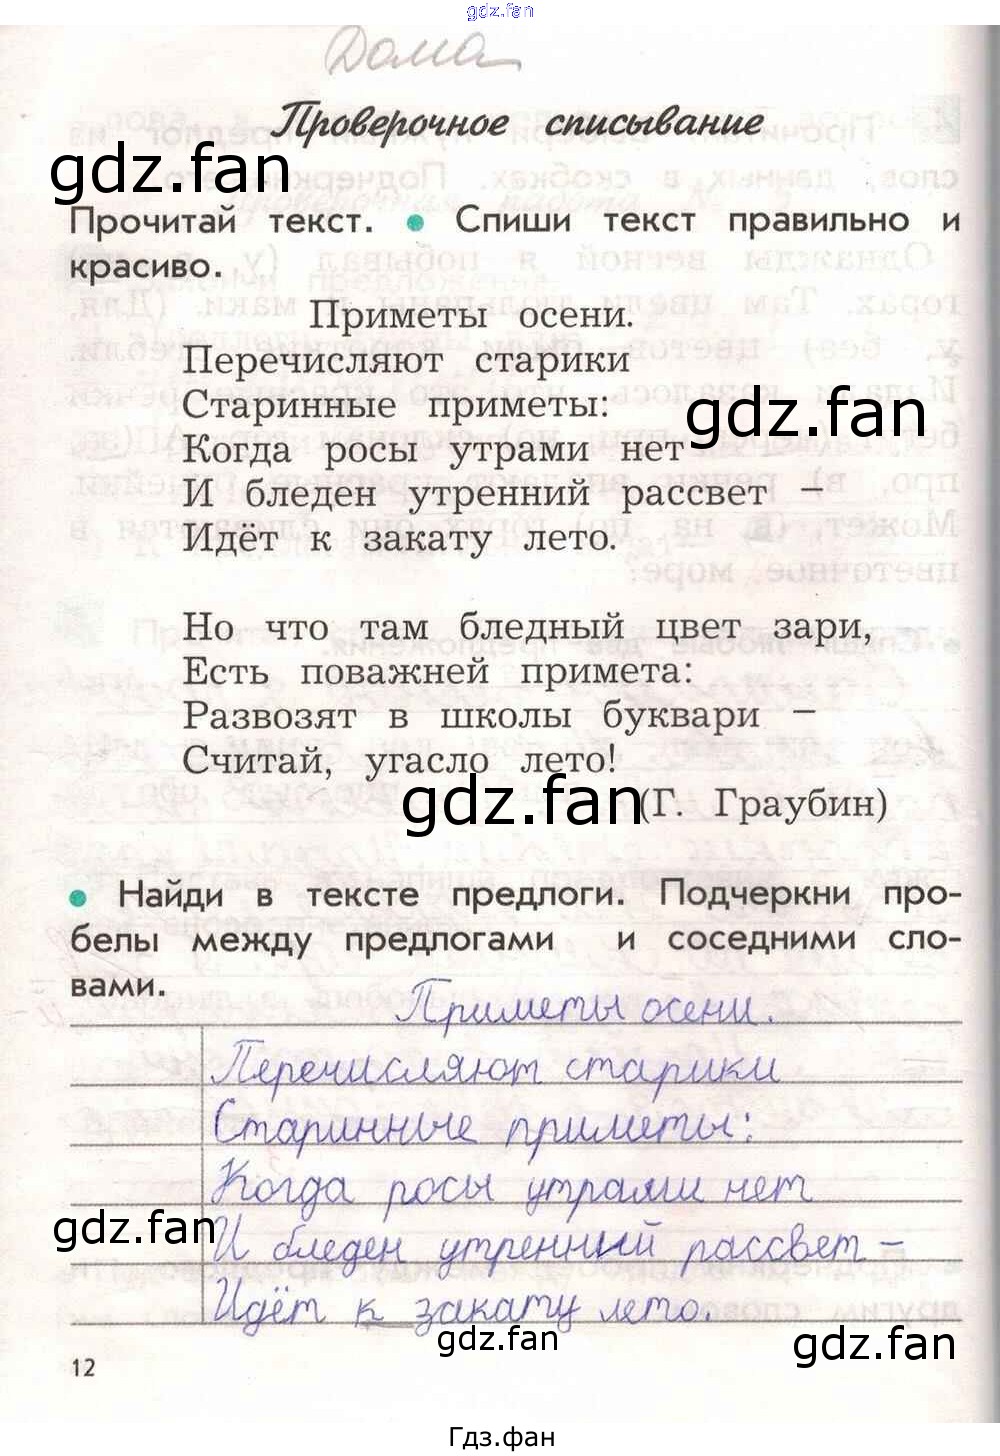 gdz.fan
Дома
Проверочное списывание
gdz.fan
Прочитай текст. • Спиши текст правильно и
красиво.
Приметы осени.
Перечисляют старики
Старинные приметы:
gdz.fan
Когда росы утрами нет
И бледен утренний рассвет –
Идёт к закату лето.
Но что там бледный цвет зари,
Есть поважней примета:
Развозят в школы буквари –
Считай, угасло лето!
gdz.fan
(Г. Граубин)
• Найди в тексте предлоги. Подчеркни про-
белы между предлогами и соседними сло-
вами.
Приметы осени.
Перечисляют старики
Старинные приметы:
Когда росы утрами нет
gdz.fan
И бледен утренний рассвет –
Идёт к закату лето.
gdz.fan
gdz.fan
12
Гдз.фан